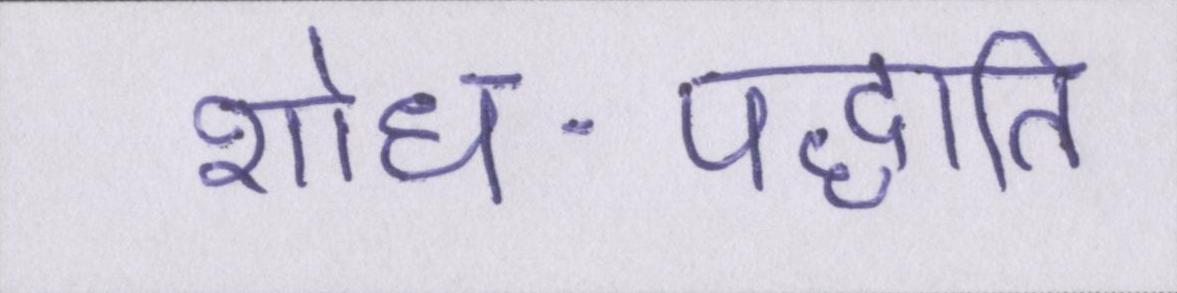 शोध-पद्धाति